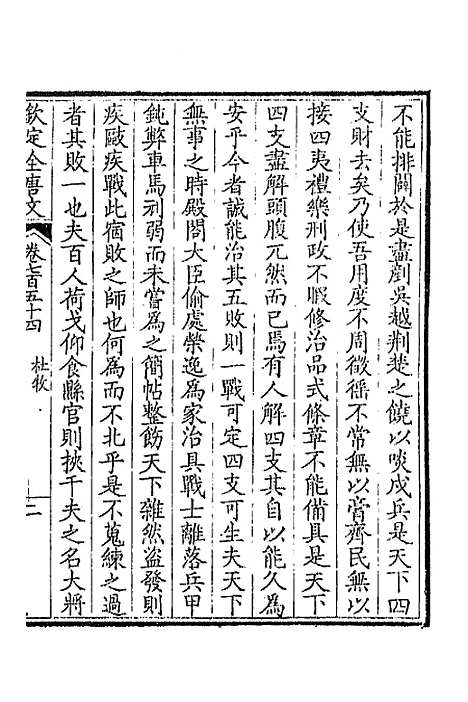 不能排闢於是盡剷吳越荆楚之饒以啖戍兵是天下四
支財去矣乃使吾用度不周徵徭不常無以膏齊民無以
接四夷禮樂刑政不暇修治品式條章不能備具是天下
四支盡解頭腹兀然而已焉有人解四支其自以能久為
安乎今者誠能治其五敗則一戰可定四支可生夫天下
無事之時殿閣大臣偷處榮逸為家治具戰士離落兵甲
鈍弊車馬刓弱而未嘗為之簡帖整飭天下雜然盜發則
疾毆疾戰此宿敗之師也何為而不北乎是不蒐練之過
者其敗一也夫百人荷戈仰食縣官則挾千夫之名大將
欽定全唐文 卷七百五十四 杜牧 二